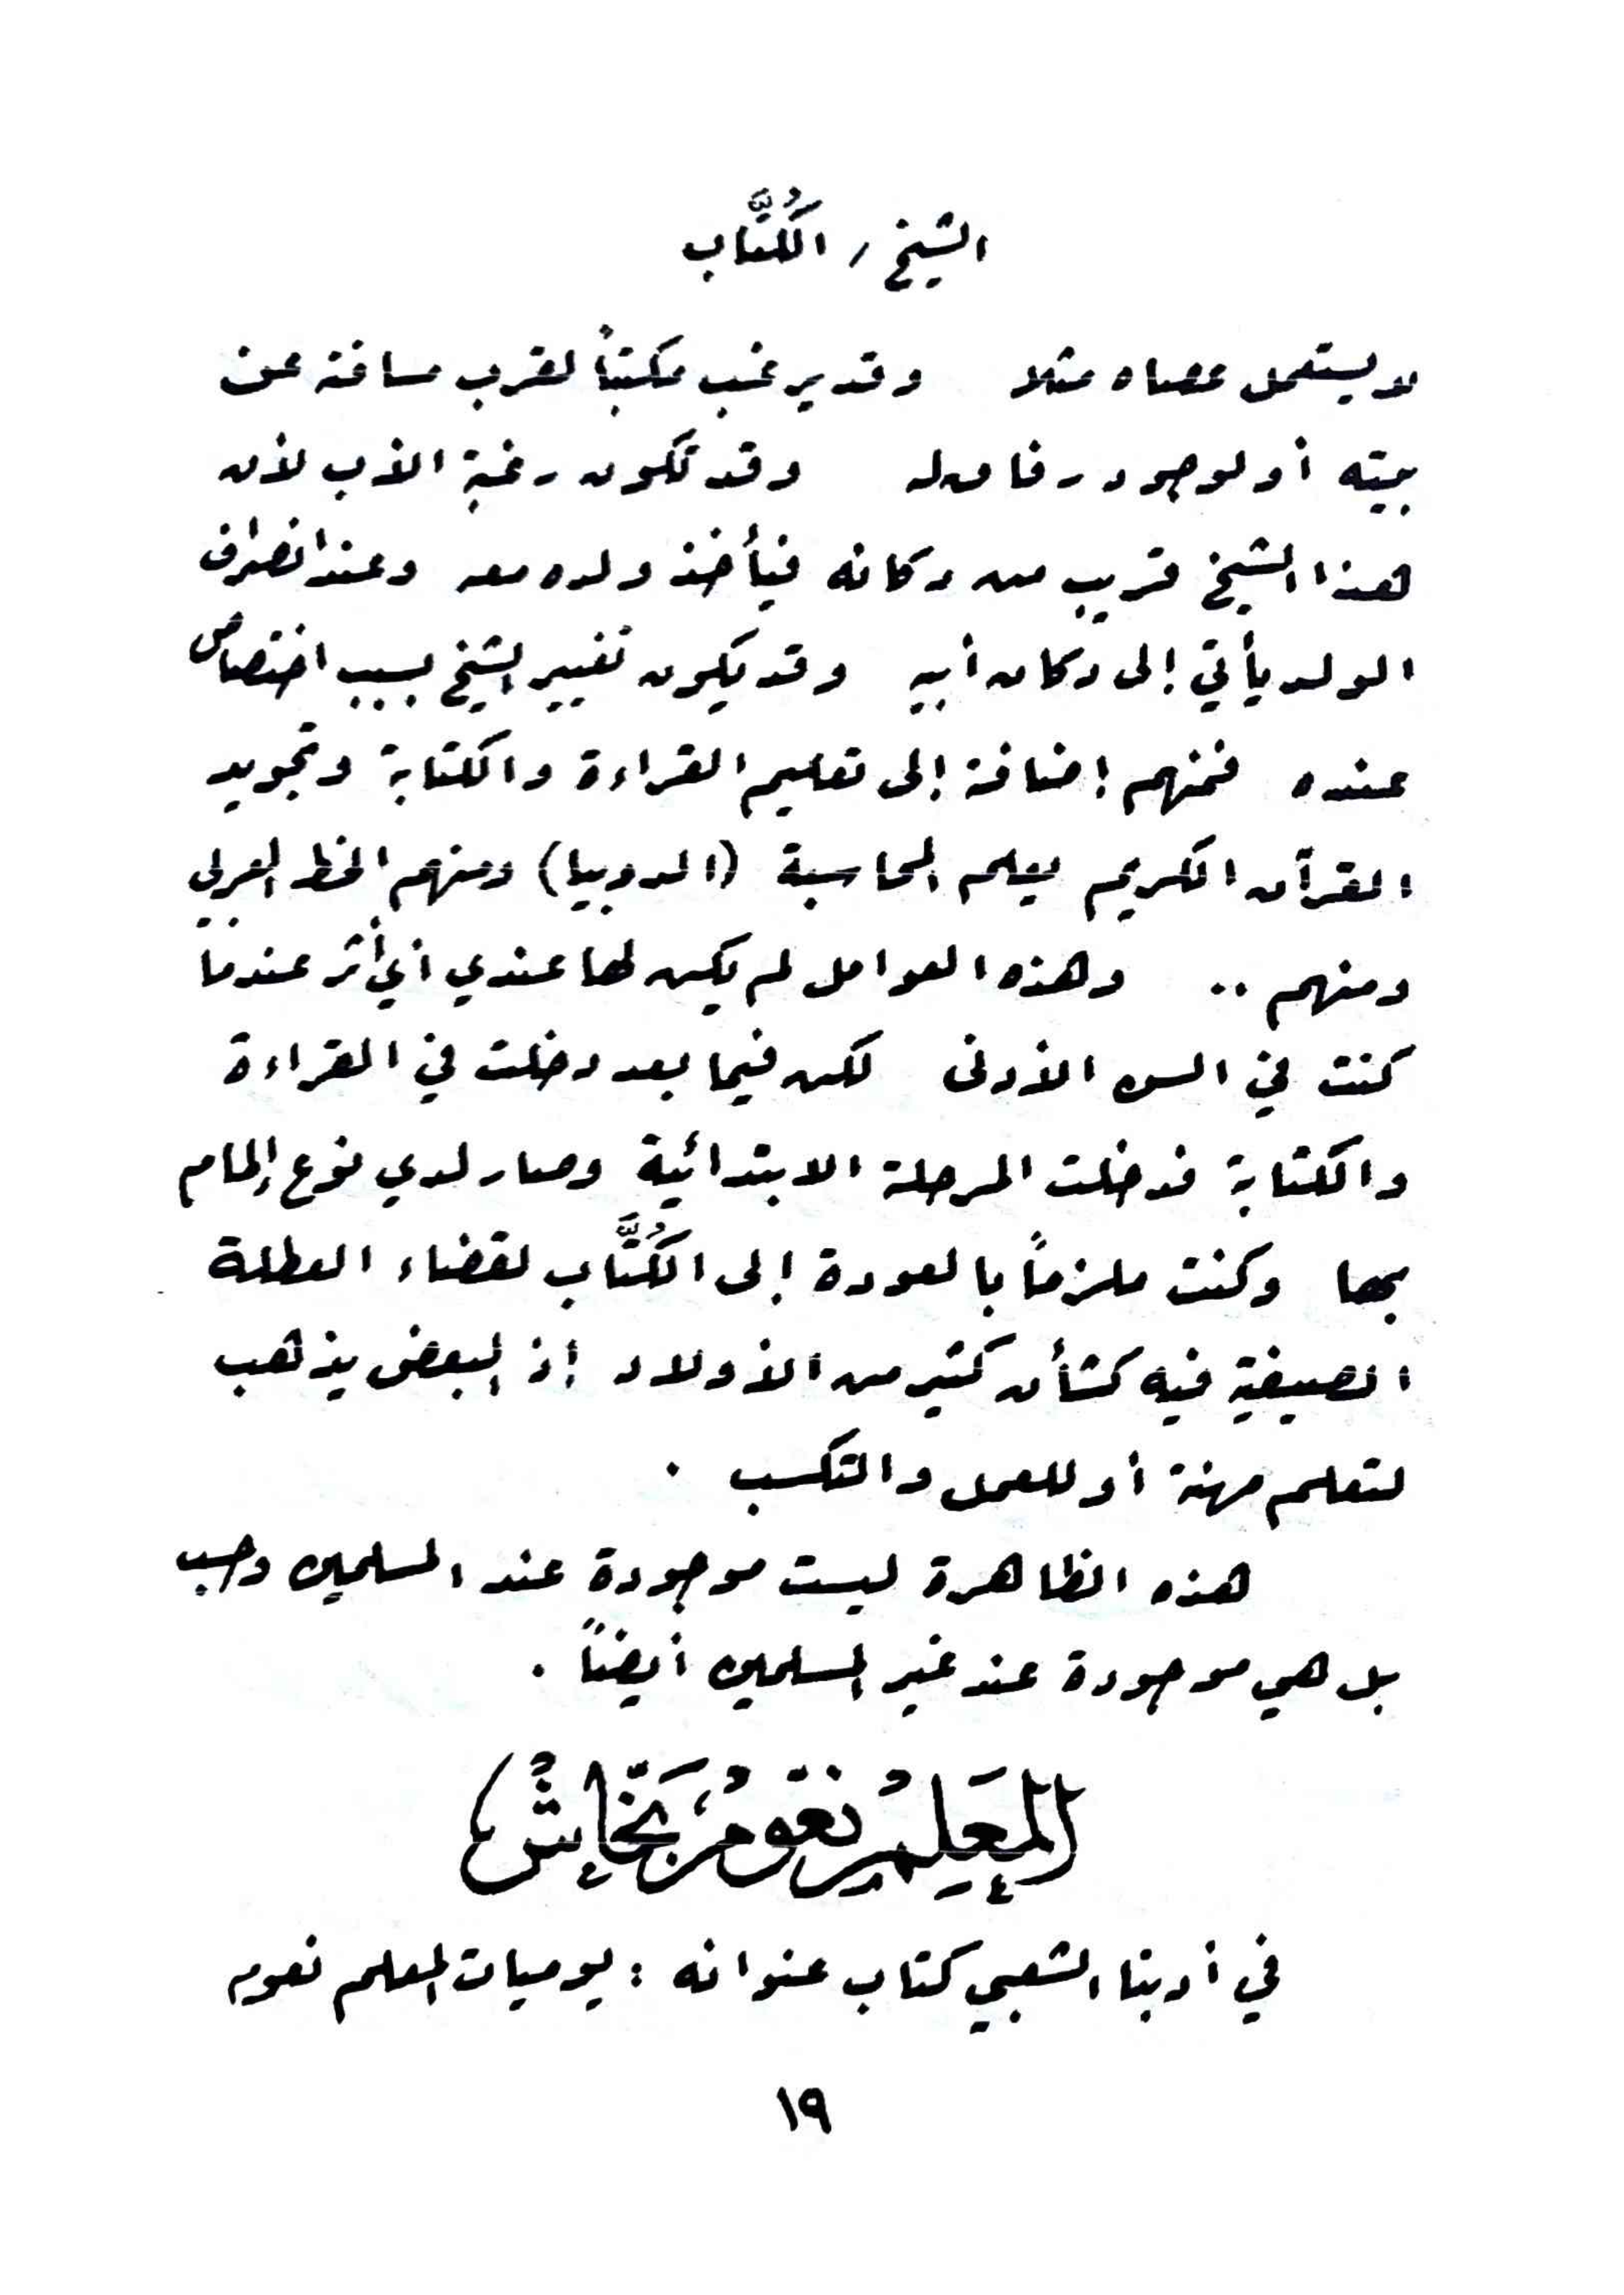 الشيخ / الكُتَّاب
لا يستعمل عصاه مثلا وقد يرغب مكتباً لقرب مسافة عن
بيته أو لوجود رفاق له وقد تكون رغبة الأب لأن
هذا الشيخ قريب من دكانه فيأخذ ولده معه وعند انصراف
الولد يأتي إلى دكان أبيه وقد يكون تغيير الشيخ بسبب اختصاص
عنده فمنهم إضافة إلى تعليم القراءة والكتابة وتجويد
القرآن الكريم يعلم المحاسبة (الدوبيا) ومنهم الخط العربي
ومنهم .. وهذه العوامل لم يكن لها عندي أي أثر عندما
كنت في السن الأدنى لكن فيما بعد دخلت في القراءة
والكتابة فدخلت المرحلة الابتدائية وصار لدي نوع إلمام
بها وكنت ملزماً بالعودة إلى الكُتَّاب لقضاء العطلة
الصيفية فيه كشأن كثير من الأولاد إذ البعض يذهب
لتعلم مهنة أو للعمل والتكسب .
هذه الظاهرة ليست موجودة عند المسلمين وحسب
بل هي موجودة عند غير المسلمين أيضاً .
(المعلم نعوم بخاش)
في أدبنا الشعبي كتاب عنوانه : يوميات المعلم نعوم
١٩